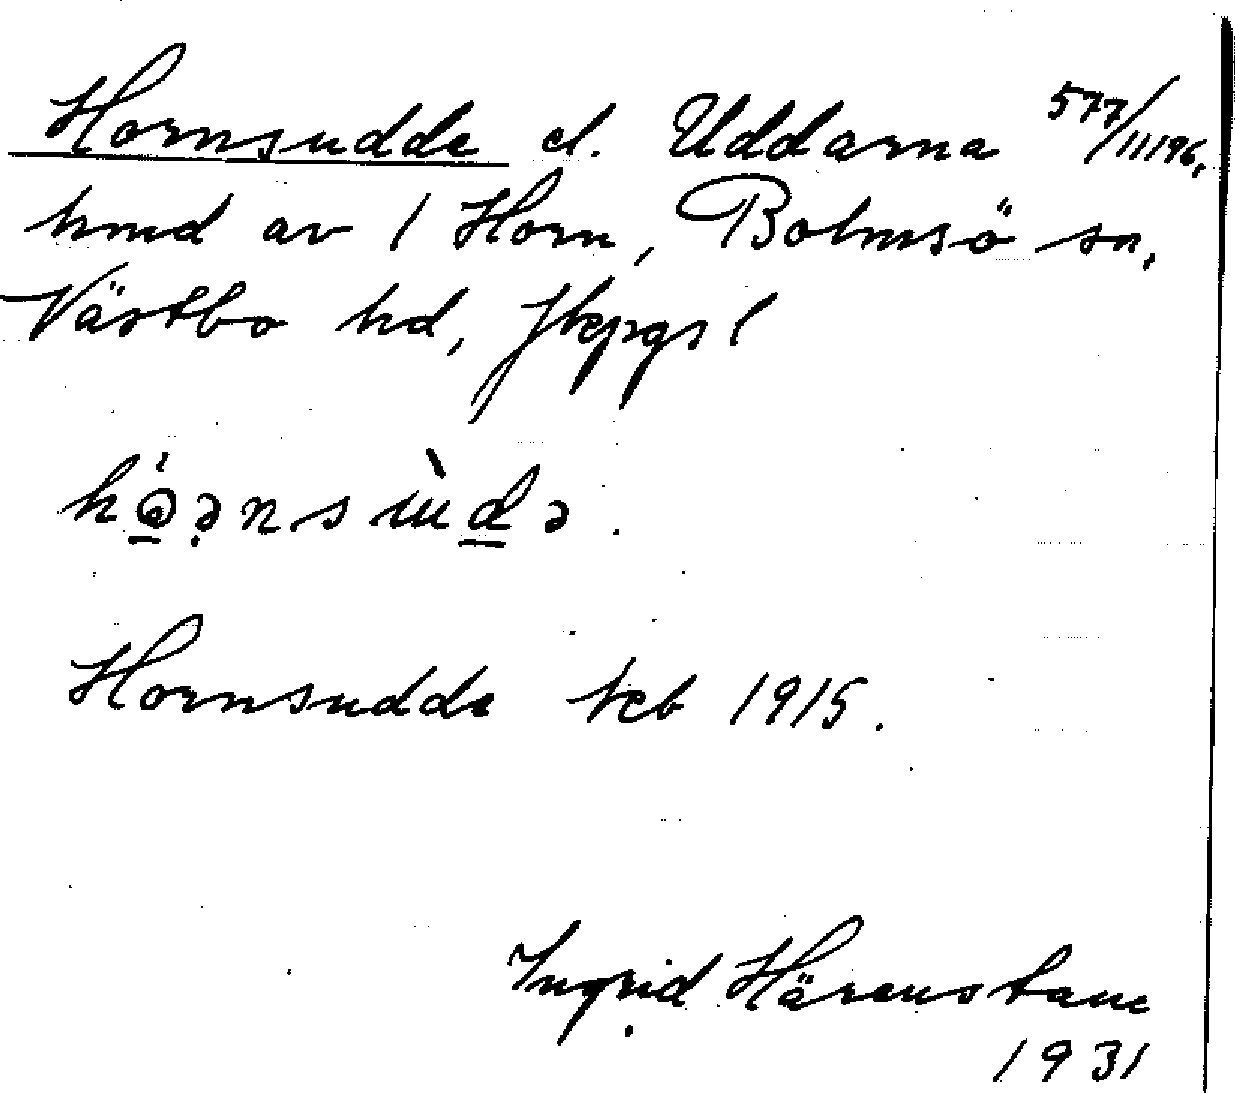 Hornsudde el. Uddarna 577/11196.
hmd av 1 Horn, Bolmsö sn,
Västbo hd, Jkpgs l
Hornsudde keb 1915.
Ingrid Härenstam
1931